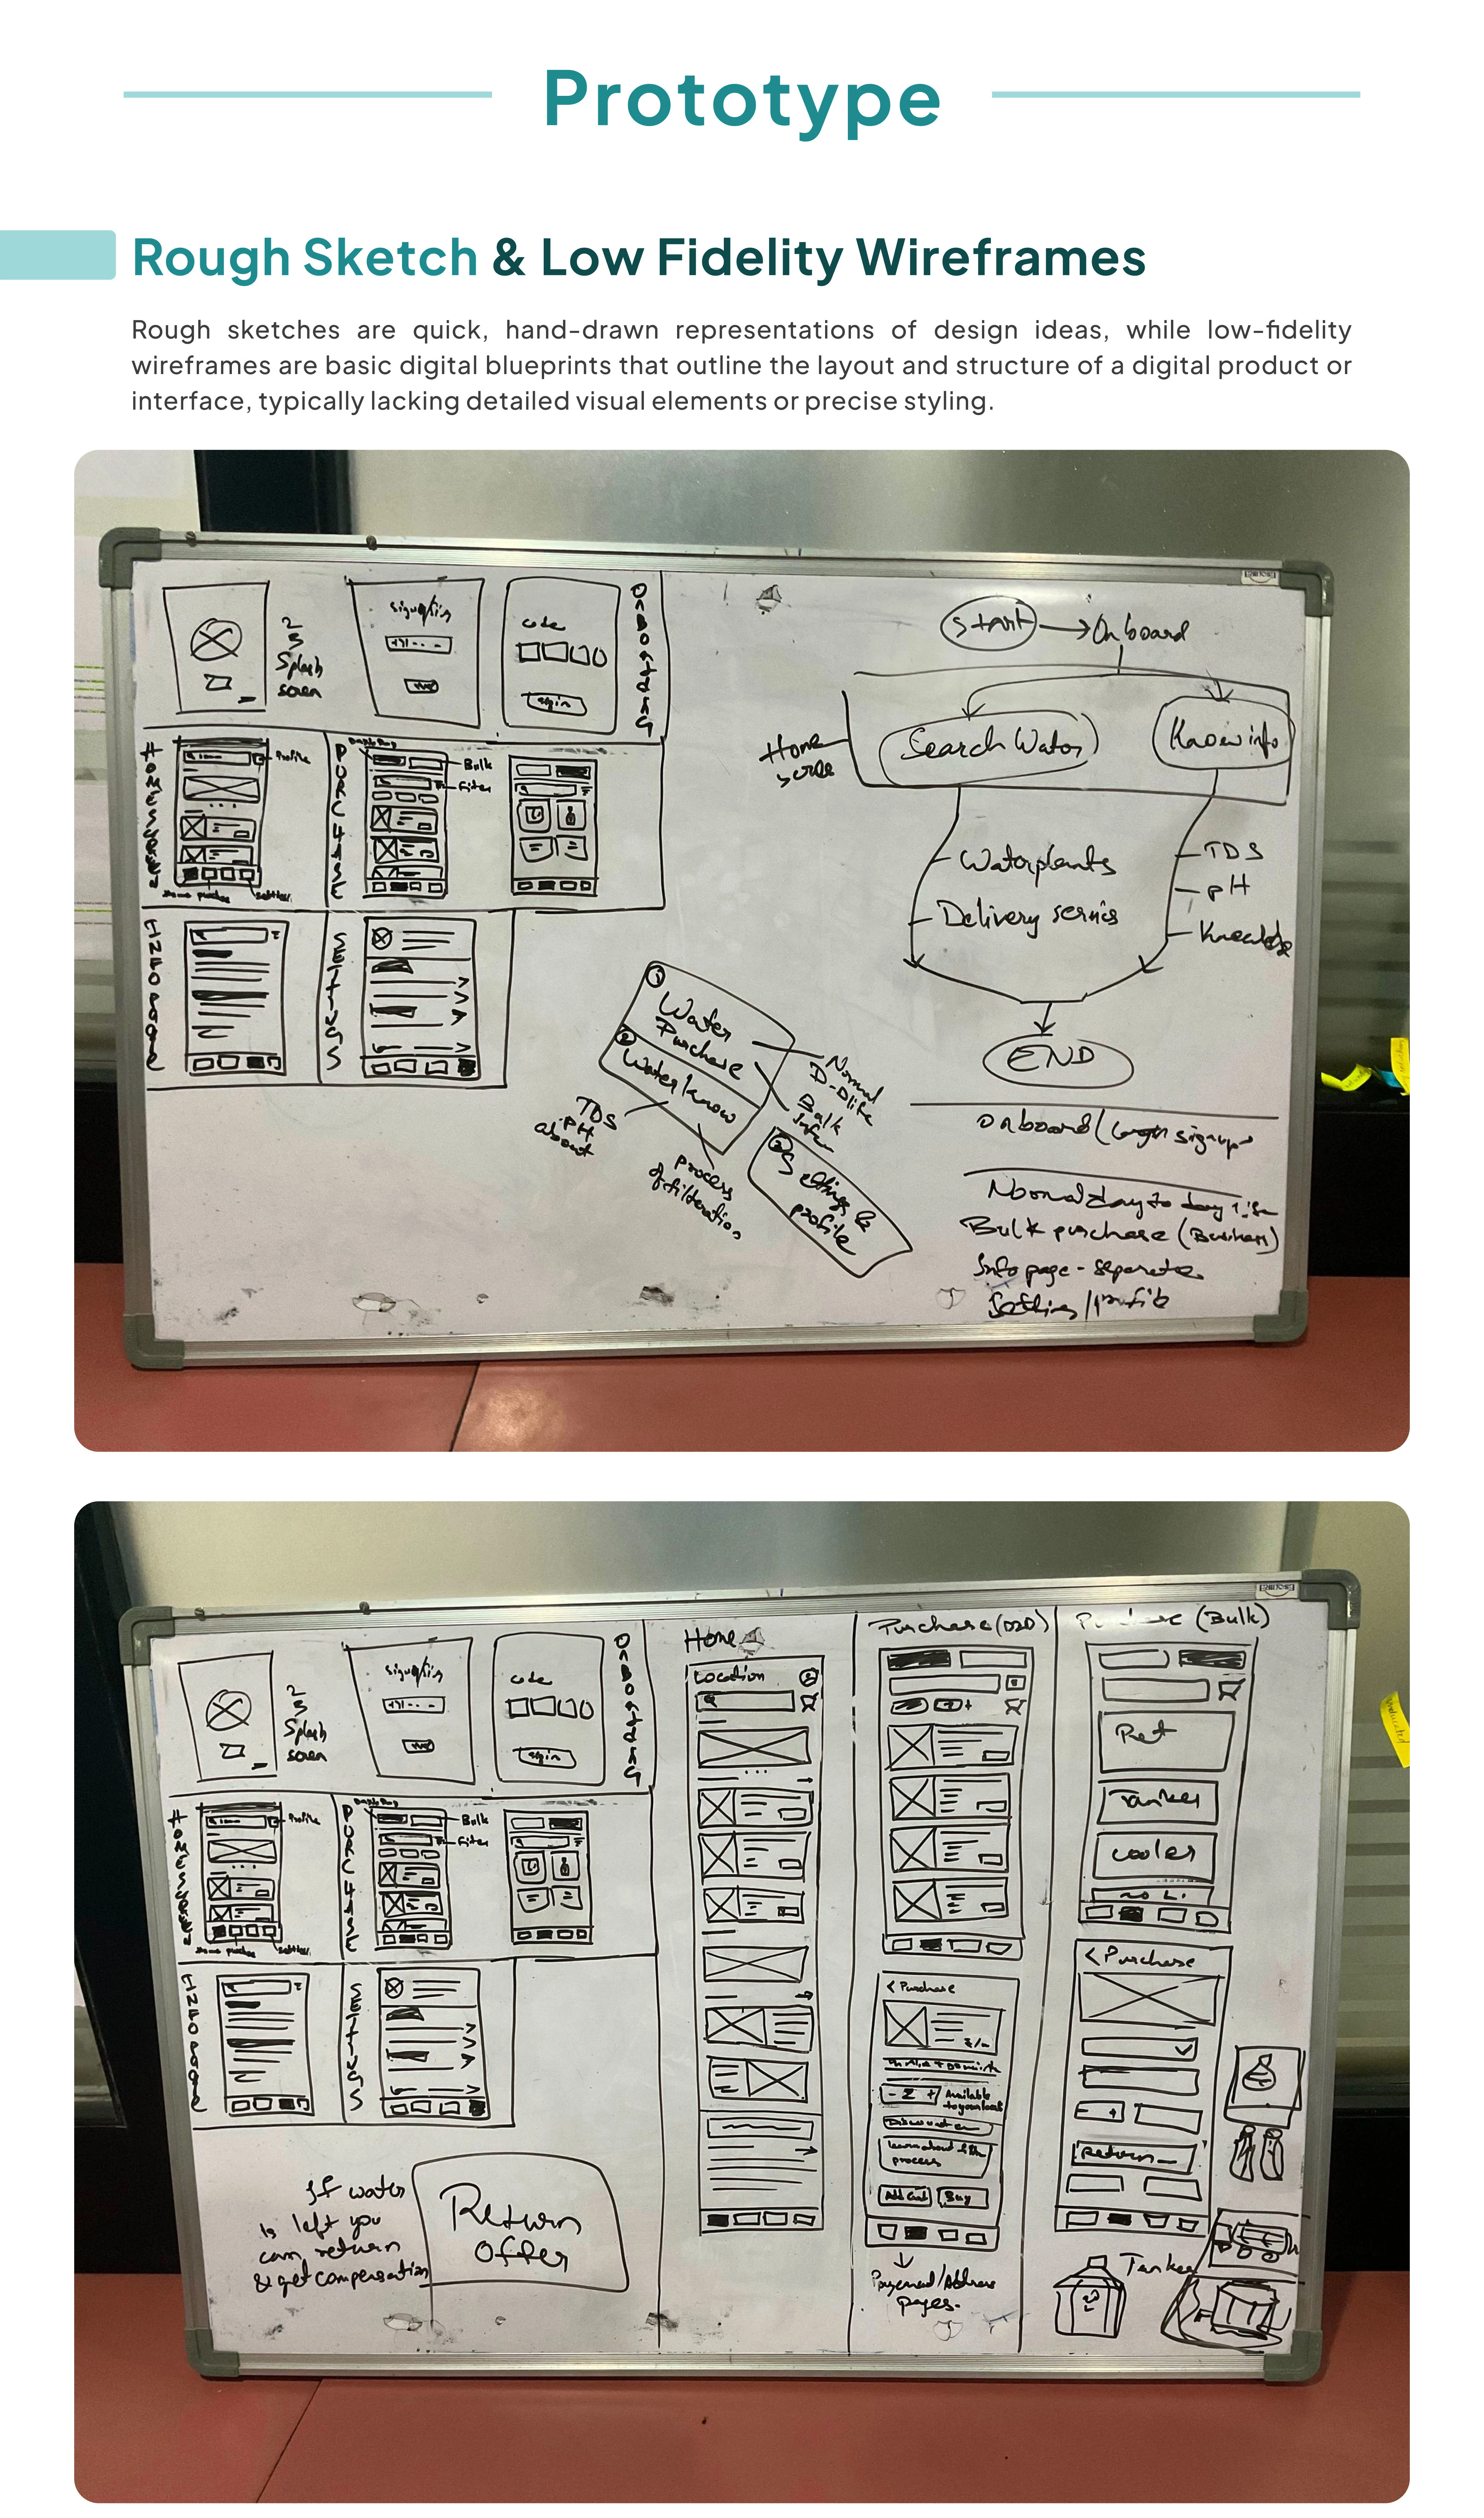 Prototype
Rough Sketch & Low Fidelity Wireframes
Rough sketches are quick, hand-drawn representations of design ideas, while low-fidelity
wireframes are basic digital blueprints that outline the layout and structure of a digital product or
interface, typically lacking detailed visual elements or precise styling.
2
Splash
code
ONBOARDING
Profile
PURCHASE
Bulk
SETTINGS
Start
Onboard
Home
Search Water
Know info
Waterplants
TDS
pH
Delivery
END
1
Water
Purchase
2
Water know
Normal
Bulk
TDS
pH
about
process
of filteration
Settings &
profile
onboard
Normal day to day
Bulk purchase (Business)
Info page - separate
2
Splash
code
ONBOARDING
Profile
PURCHASE
Bulk
SETTINGS
If water
is left you
can return
& get compensation
Return
Offer
Home
Location
Purchase (D2D)
< Purchase
- 2 +
Available
process
Add Cart
Buy
Payment/Address
pages.
(Bulk)
Tanker
cooler
20 L.
< Purchase
Return
Tanker